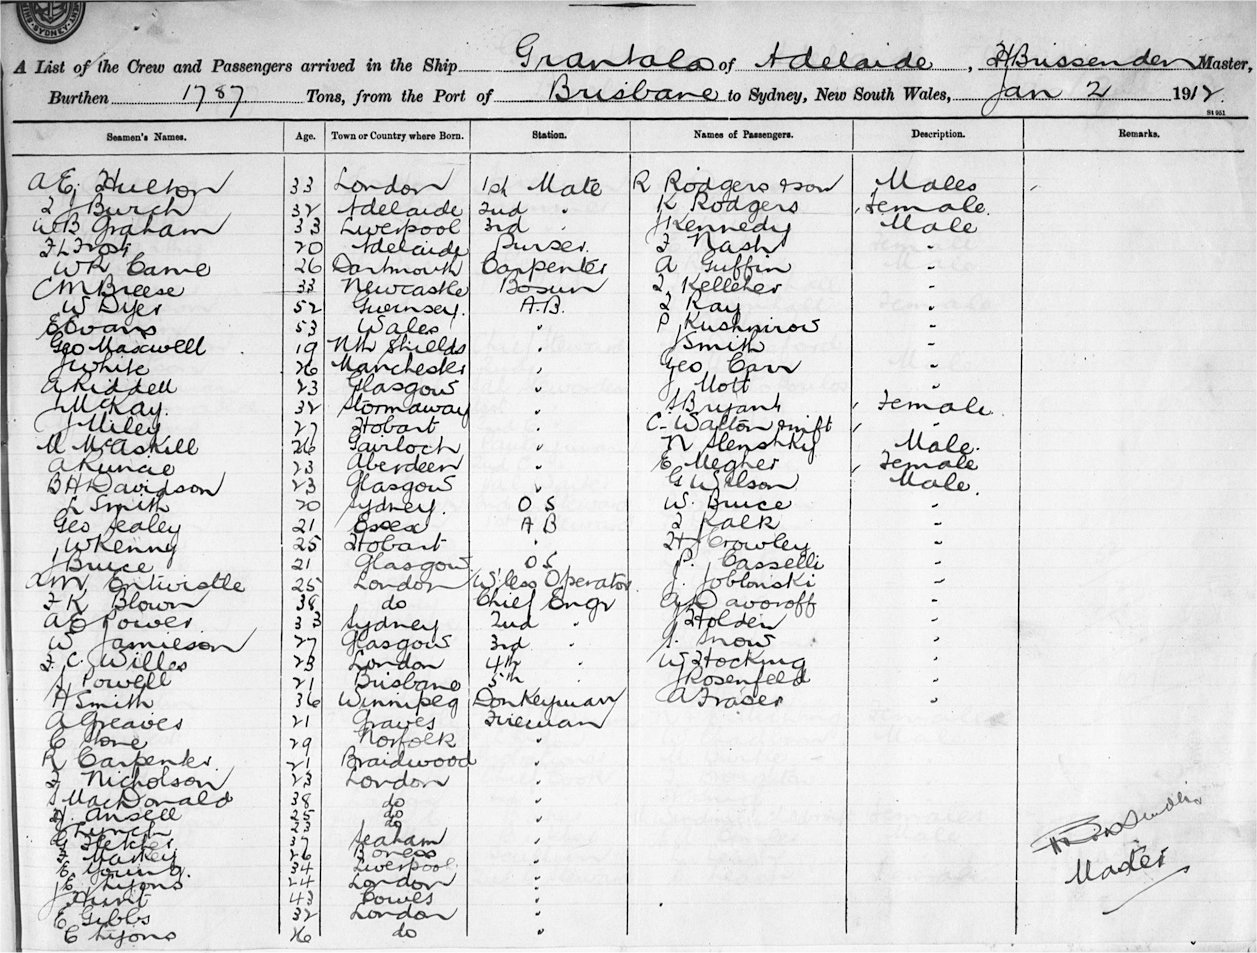 SYDNEY
A List of the Crew and Passengers arrived in the Ship Grantala of Adelaide, H Brissenden Master,
Burthen 1787 Tons, from the Port of Brisbane to Sydney, New South Wales, Jan 2 1912.
St 951
Seamen's Names. Age. Town or Country where Born. Station. Names of Passengers. Description. Remarks.
A E. Hulton 33 London 1st Mate R Rodgers & son Males
J Burch 32 Adelaide 2nd " K Rodgers Female
W B Graham 33 Liverpool 3rd " J Kennedy Male
F L Frost 20 Adelaide Purser F Nash "
W R Came 26 Dartmouth Carpenter A Guffin "
C M Breese 33 Newcastle Bosun J. Kelleher "
W Dyer 52 Guernsey. A.B. J Kay "
E Evans 53 Wales " P. Kushnirow "
Geo Maxwell 19 Nth Shields " J Smith "
J White 26 Manchester " Geo Carr "
A Riddell 23 Glasgow " J Mott "
J McKay. 32 Stornaway " S Bryant Female
J Miley 27 Hobart " C. Walton Swift "
M McAskill 26 Gairloch " N Slenshkij Male.
A Runcie 23 Aberdeen " E Megher Female
B H Davidson 23 Glasgow " G Wilson Male.
L Smith 20 Sydney. O S W. Bruce "
Geo Sealey 21 Essex A B J Kalk "
J W Kenny 25 Hobart " H J Crowley "
J Bruce 21 Glasgow O S P. Casselli "
A M. Entwistle 25 London W'less Operator J. Joblonski "
F R Blown 38 do Chief Engr A Davoroff "
A E Power 33 Sydney 2nd " J Holden "
W Jamieson 27 Glasgow 3rd " G. Snow "
F. C. Willes 23 London 4th " W Hocking "
S. Powell 21 Brisbane 5th " J Rosenfeld "
H Smith 36 Winnipeg Donkeyman A Fraser "
A Greaves 21 Graves Fireman
C Stone 29 Norfolk "
R Carpenter 21 Braidwood "
J Nicholson 23 London "
J MacDonald 38 do "
H. Ansell 25 do "
Lynch 23 do "
G Fletcher 37 Seaham "
F Markey 26 Boness "
E Young. 34 Liverpool "
E Lyons 24 London "
J Hunt 43 Cowes "
E Gibbs 32 London "
C Lyons 26 do "
Master